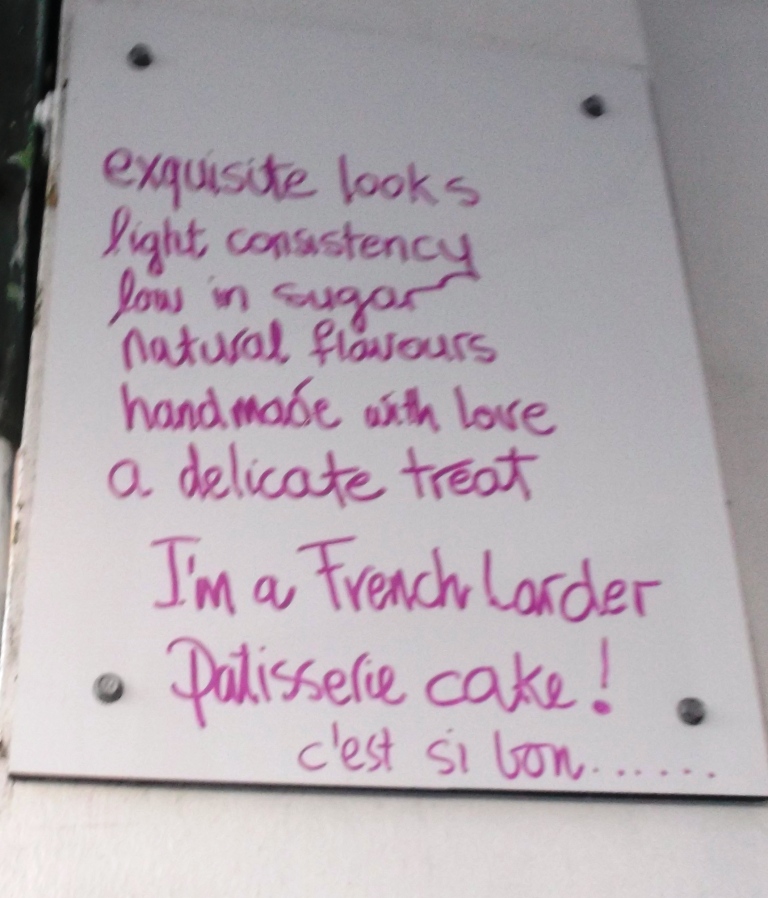 exquisite looks
light consistency
low in sugar
natural flavours
handmade with love
a delicate treat
I'm a French Larder
Patisserie cake!
c'est si bon.......